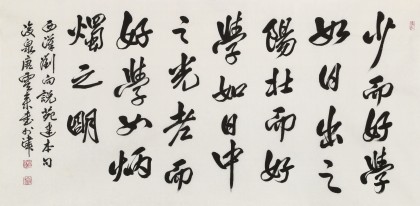 少而好學
如日出之
陽壯而好
學如日中
之光老而
好學如炳
燭之明
西漢劉向說苑建本句